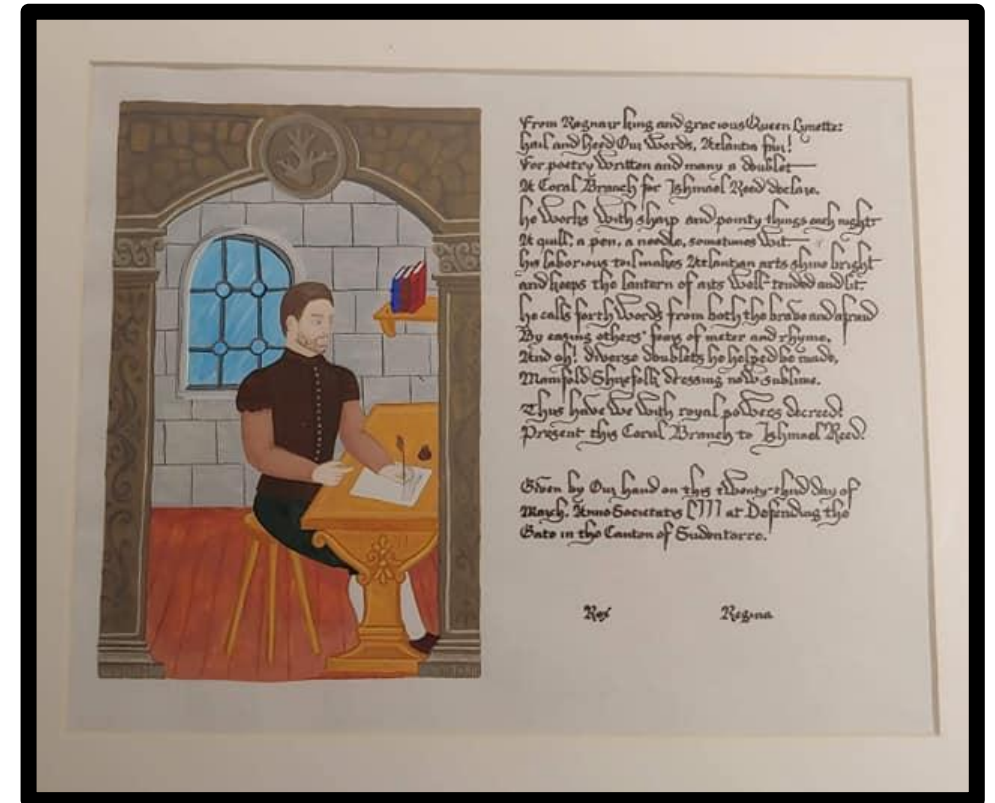 From Ragnarr king and gracious Queen Lynette:
hail and heed Our Words, Atlantia fair!
For poetry Written and many a doublet
A Coral Branch for Ishmael Reed declare.
he Works With sharp and pointy things each night
A quill, a pen, a needle, sometimes Wit
his laborious toil makes Atlantian arts shine bright
and keeps the lantern of arts Well-tended and lit.
he calls forth Words from both the brave and afraid
By easing others' fears of meter and rhyme,
And oh! diverse doublets he helped be made,
Manifold dressing now sublime.
Thus have We With royal powers decreed:
Present this Coral Branch to Ishmael Reed.
Given by Our hand on this twenty-third day of
March, Anno Societatis LIII at Defending the
Gate in the Canton of Sudentorre.
Rex Regina